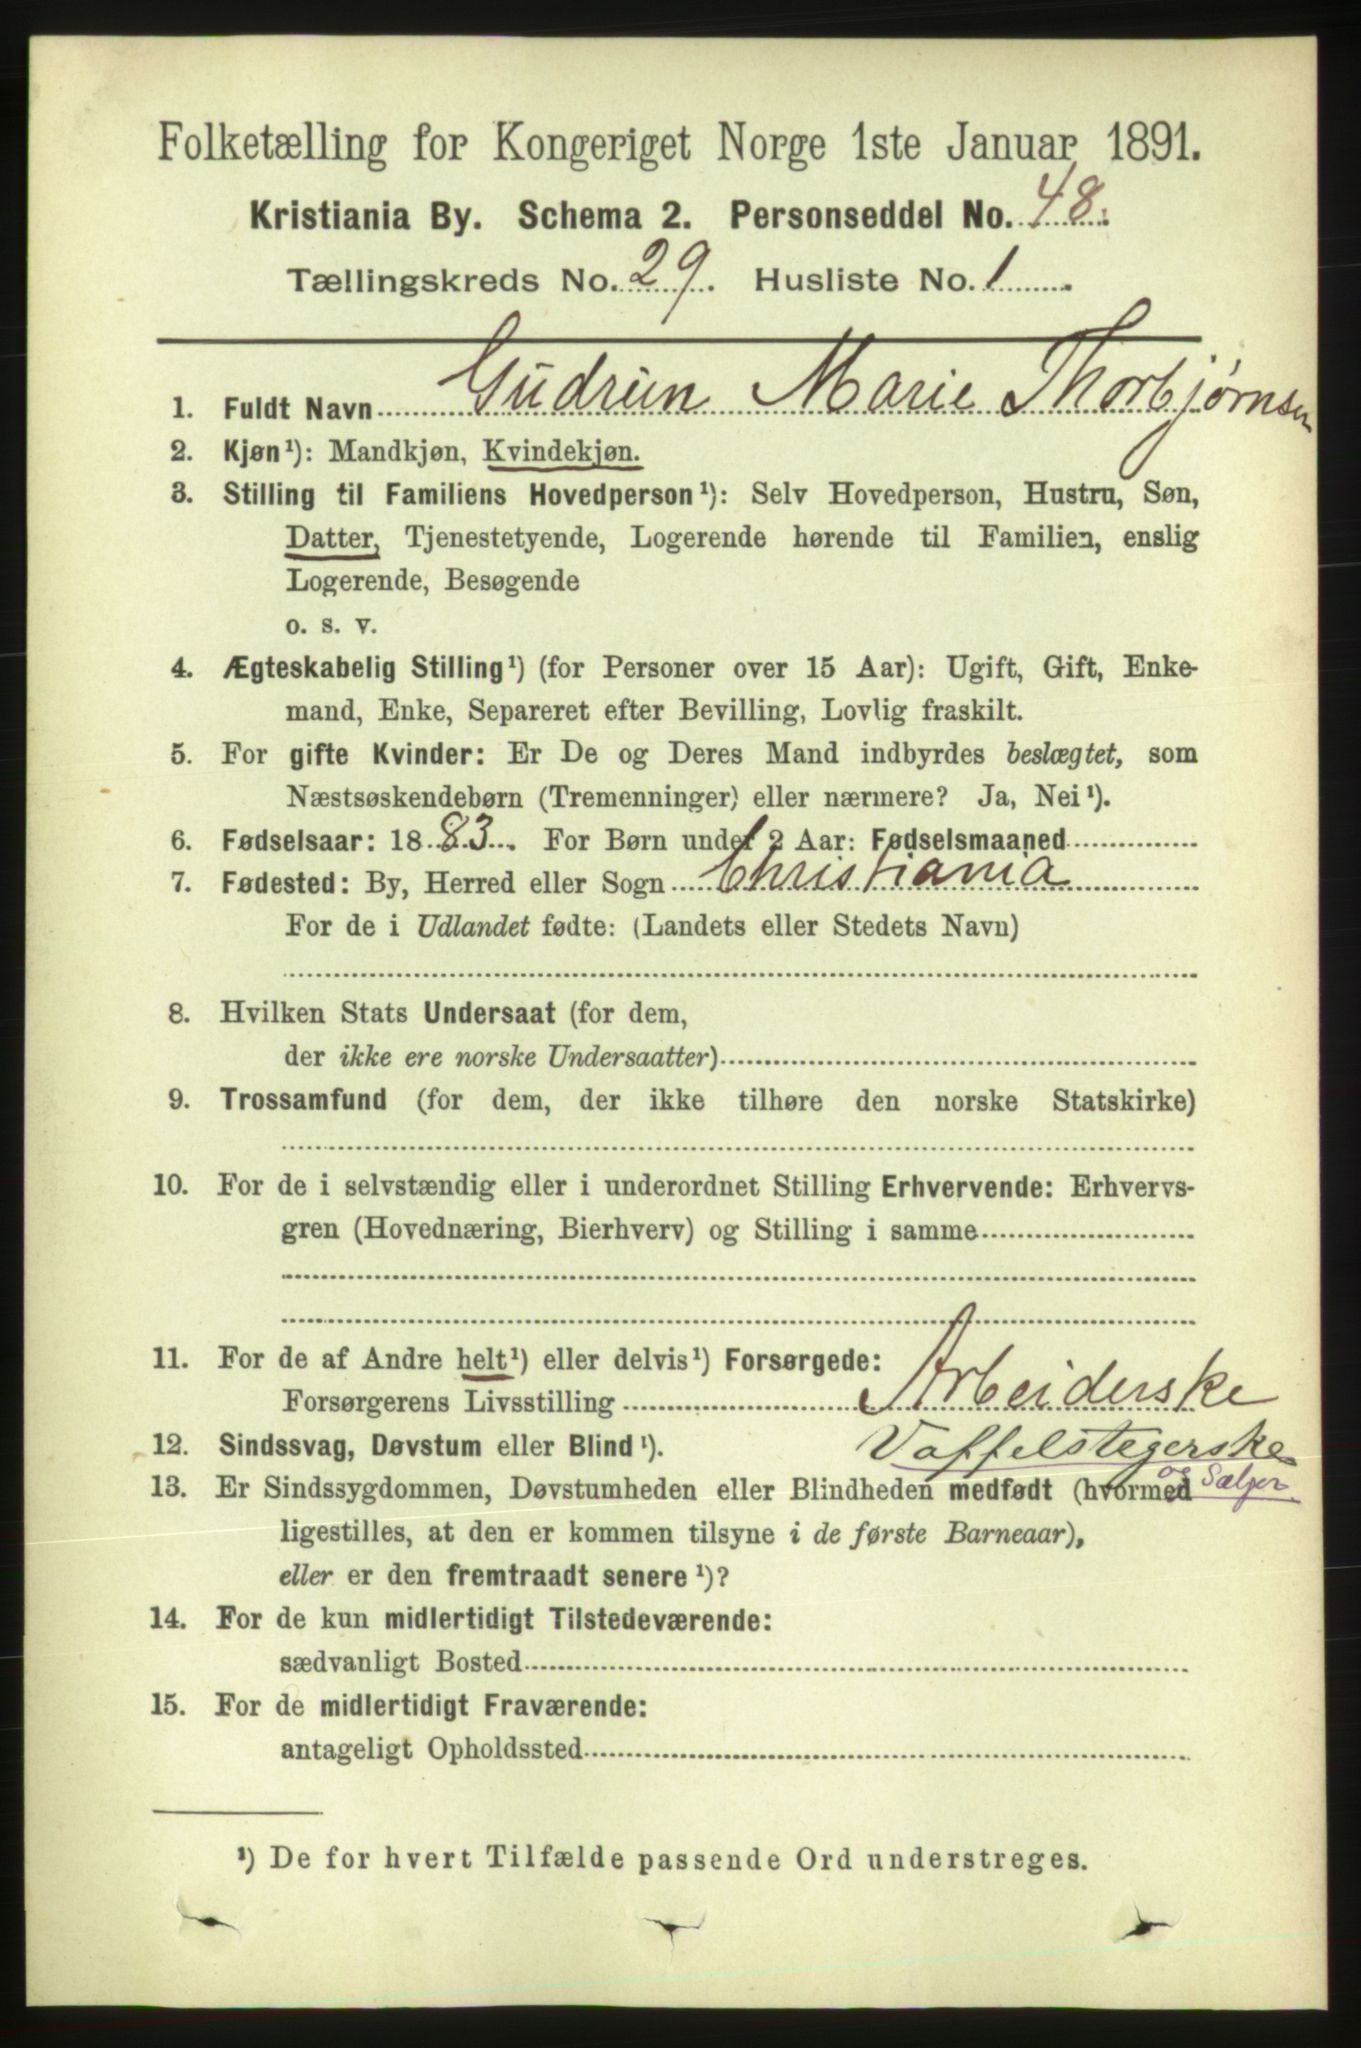 Folketælling for Kongeriget Norge 1ste Januar 1891.
Kristiania By. Schema 2. Personseddel No. 48.
Tællingskreds No. 29. Husliste No. 1.
1. Fuldt Navn Gudrun Marie Thorbjørnsen
2. Kjøn¹): Mandkjøn, Kvindekjøn.
3. Stilling til Familiens Hovedperson¹): Selv Hovedperson, Hustru, Søn,
Datter, Tjenestetyende, Logerende hørende til Familien, enslig
Logerende, Besøgende
o. s. v.
4. Ægteskabelig Stilling¹) (for Personer over 15 Aar): Ugift, Gift, Enke-
mand, Enke, Separeret efter Bevilling, Lovlig fraskilt.
5. For gifte Kvinder: Er De og Deres Mand indbyrdes beslægtet, som
Næstsøskendebørn (Tremenninger) eller nærmere? Ja, Nei¹).
6. Fødselsaar: 1883. For Børn under 2 Aar: Fødselsmaaned
7. Fødested: By, Herred eller Sogn Christiania
For de i Udlandet fødte: (Landets eller Stedets Navn)
8. Hvilken Stats Undersaat (for dem,
der ikke ere norske Undersaatter)
9. Trossamfund (for dem, der ikke tilhøre den norske Statskirke)
10. For de i selvstændig eller i underordnet Stilling Erhvervende: Erhvervs-
gren (Hovednæring, Bierhverv) og Stilling i samme
11. For de af Andre helt¹) eller delvis¹) Forsørgede:
Forsørgerens Livsstilling Arbeiderske
12. Sindssvag, Døvstum eller Blind¹). Vaffelstegerske
og Sælger
13. Er Sindssygdommen, Døvstumheden eller Blindheden medfødt (hvormed
ligestilles, at den er kommen tilsyne i de første Barneaar),
eller er den fremtraadt senere¹)?
14. For de kun midlertidigt Tilstedeværende:
sædvanligt Bosted
15. For de midlertidigt Fraværende:
antageligt Opholdssted
¹) De for hvert Tilfælde passende Ord understreges.